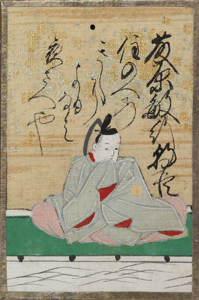 藤原敏行朝臣
住のえの
きしに
よるなみ
夜さへや